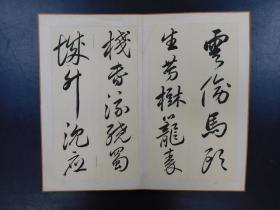 雲傍馬頭
生芳樹籠秦
棧春流繞蜀
城升沈应